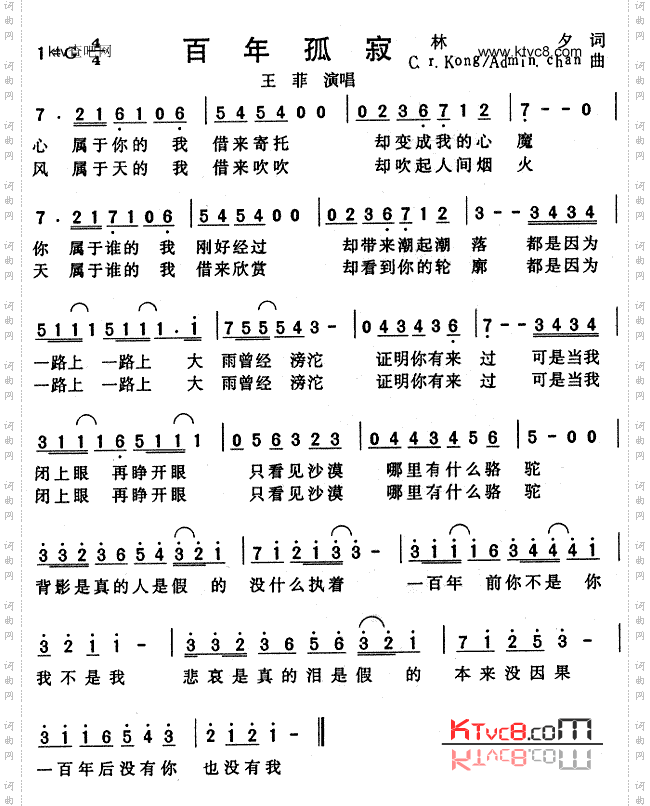 1=G 4/4 ktv查吧网
百年孤寂
林 夕 词
www.ktvc8.com
C.r.Kong/Admin.chan 曲
王 菲 演唱
7·216106 | 545400 | 0236712 | 7--00 |
心 属于你的 我 借来寄托 却变成我的心 魔
风 属于天的 我 借来吹吹 却吹起人间烟 火
7·217106 | 545400 | 0236712 | 3--3434 |
你 属于谁的 我 刚好经过 却带来潮起潮 落 都是因为
天 属于谁的 我 借来欣赏 却看到你的轮 廓 都是因为
5111 5111·1 | 755543- | 0434436 | 7--3434 |
一路上 一路上 大 雨曾经 滂沱 证明你有来 过 可是当我
一路上 一路上 大 雨曾经 滂沱 证明你有来 过 可是当我
311165111 | 0563323 | 04434456 | 5-00 |
闭上眼 再睁开眼 只看见沙漠 哪里有什么骆 驼
闭上眼 再睁开眼 只看见沙漠 哪里有什么骆 驼
3323654321 | 712133- | 31116344441 |
背影是真的人是假 的 没什么执着 一百年 前你不是 你
3211- | 3323656321 | 71253- |
我不是我 悲哀是真的泪是假 的 本来没因果
31116543 | 2121- ‖
一百年后没有你 也没有我
KTvc8.com
词曲网